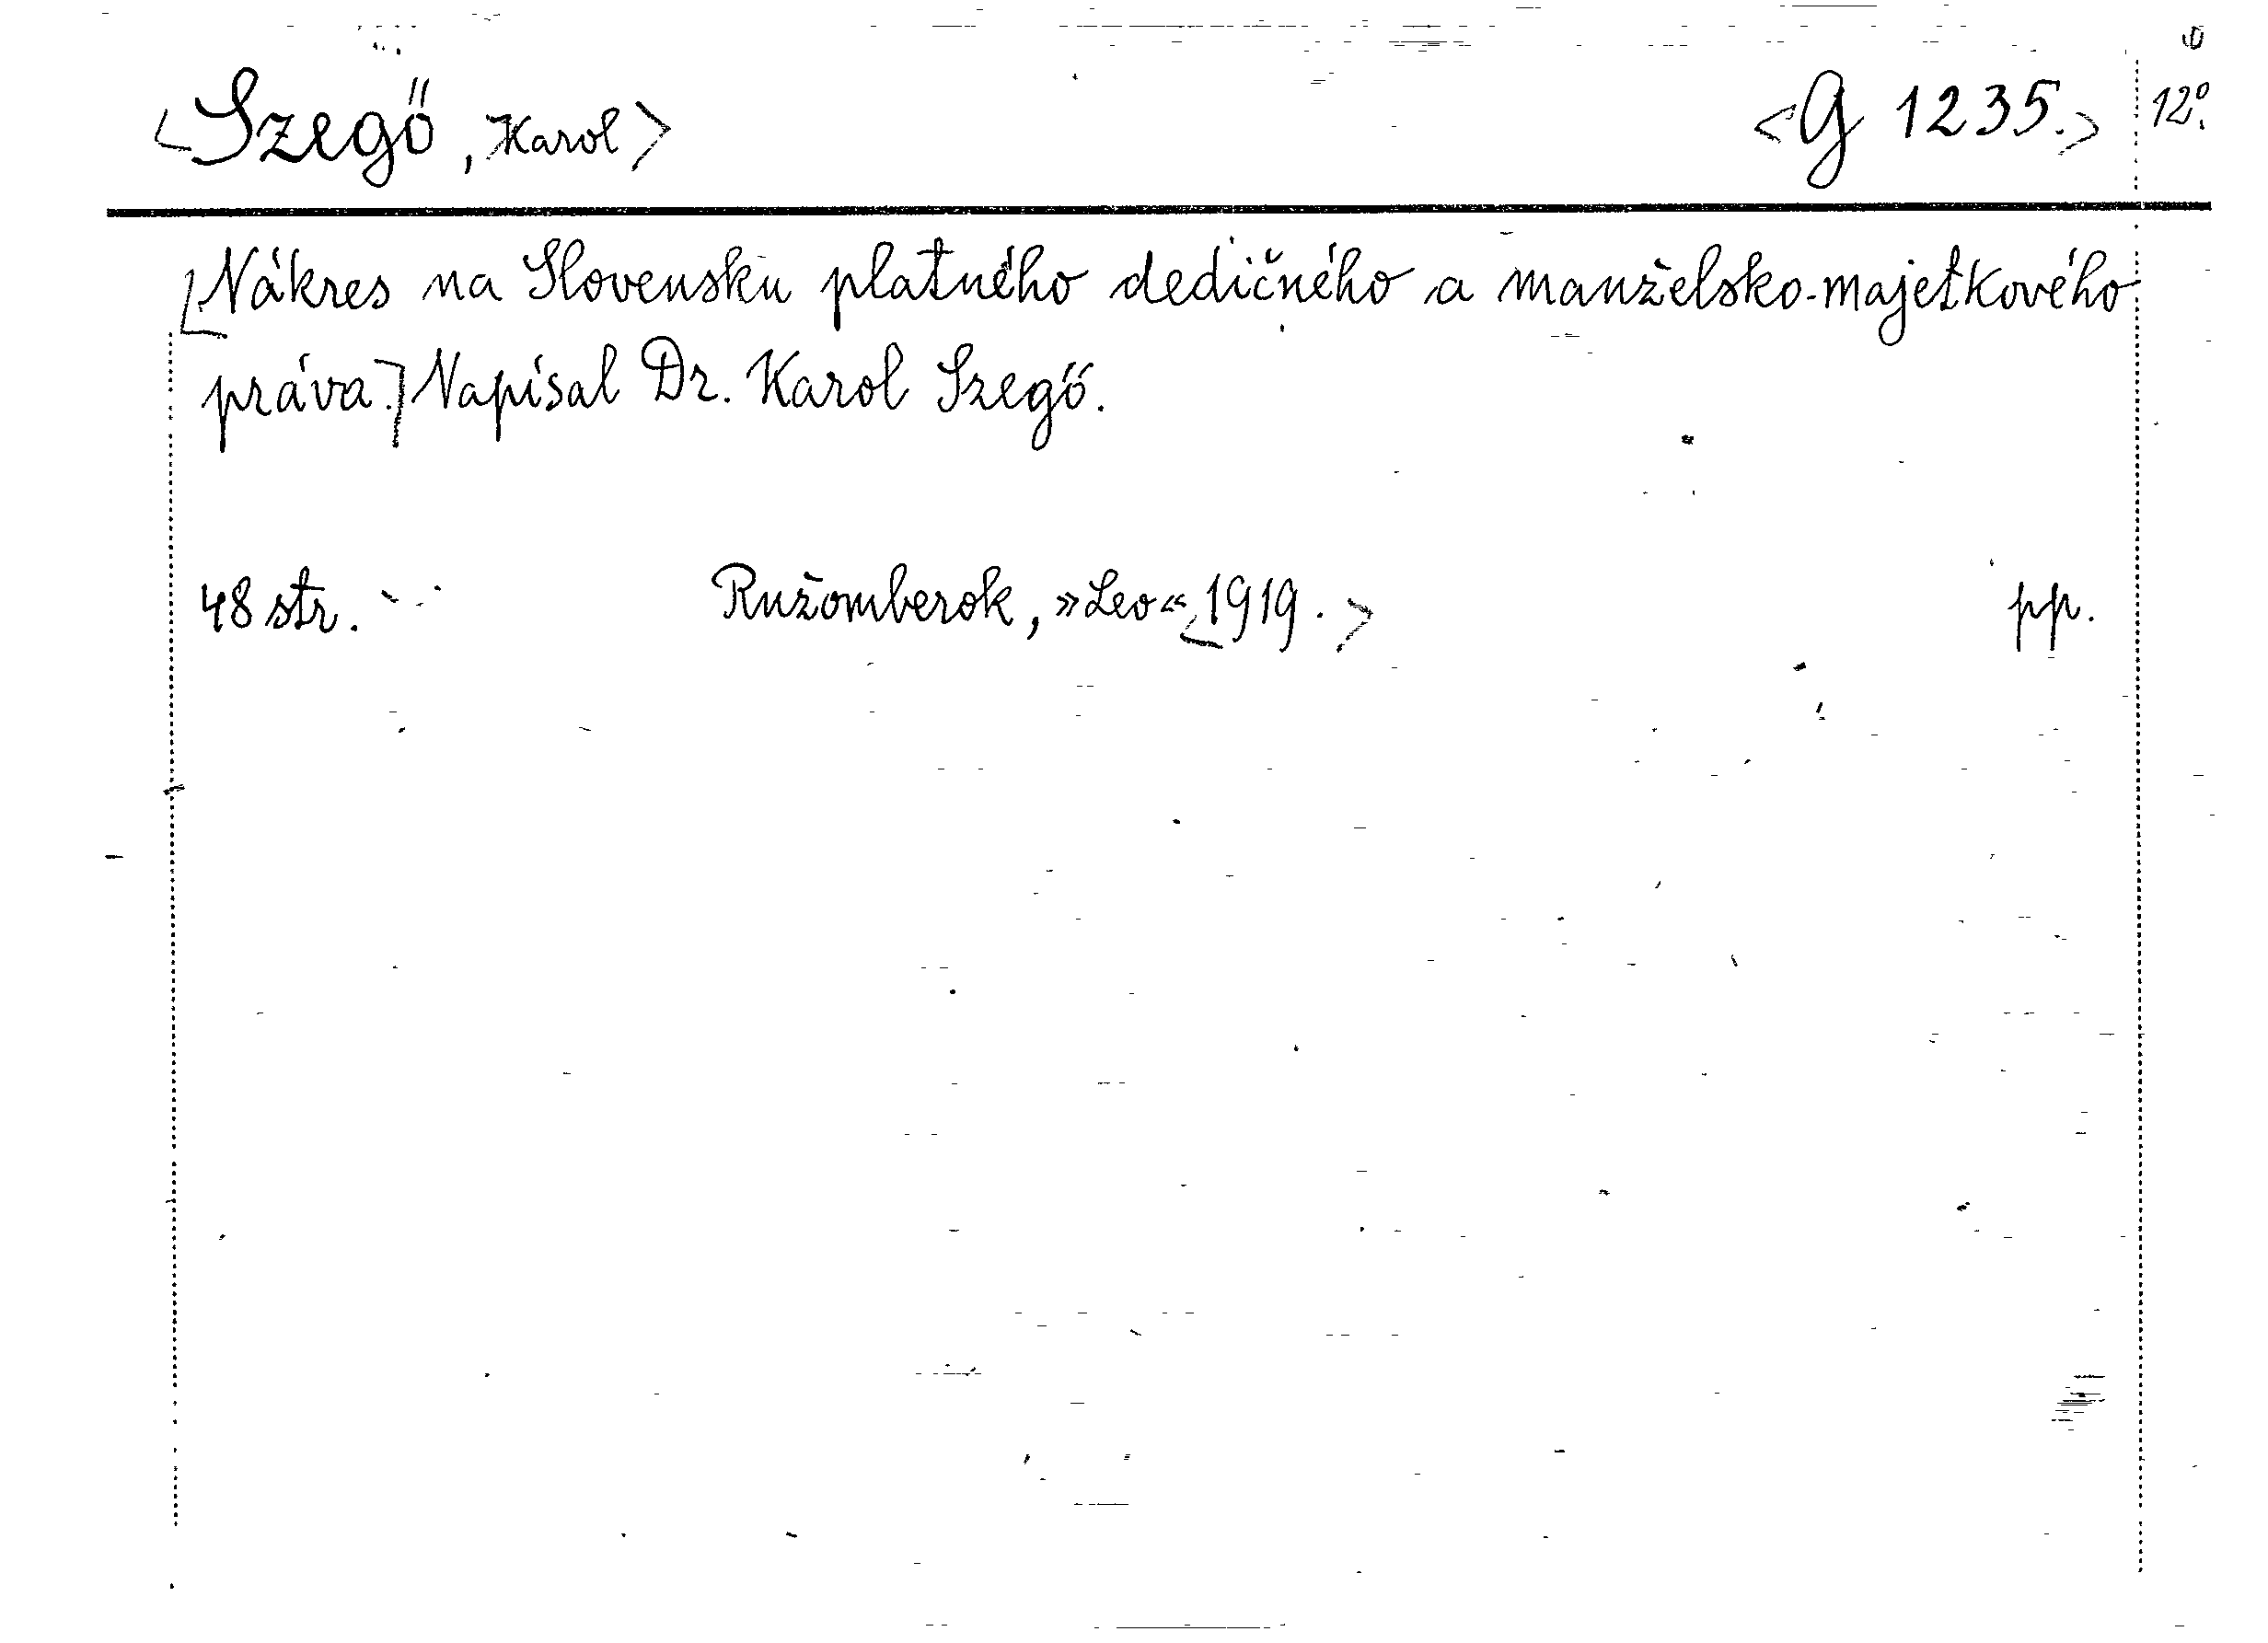 <Szegő, Karol> <G 1235.> 12°.
[Nákres na Slovensku platného dedičného a manželsko-majetkového
práva.] Napísal Dr. Karol Szegő.
48 str. Ružomberok, »Leo« <1919.> pp.